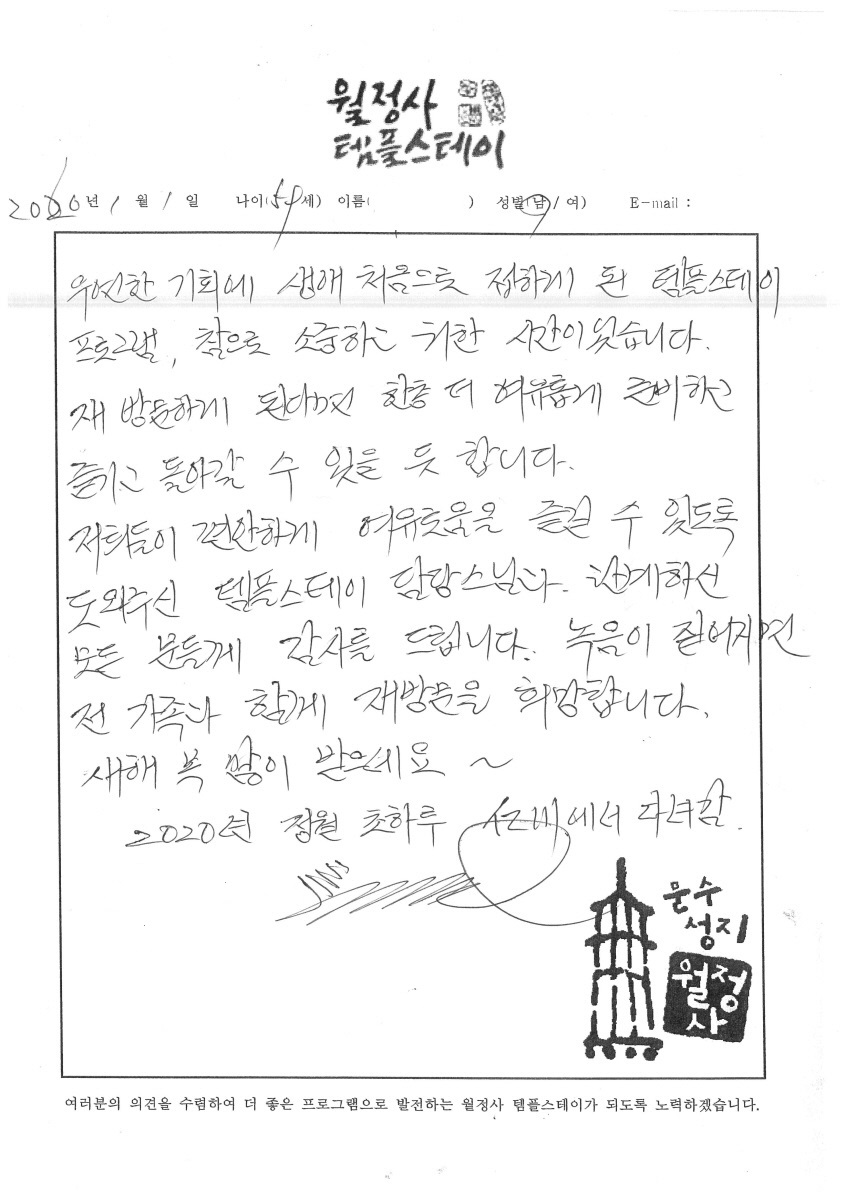 월정사
템플스테이
2020년 1월 1일 나이(59세) 이름( ) 성별(남/여) E-mail :
우연한 기회에 생애 처음으로 접하게 된 템플스테이
프로그램, 참으로 소중하고 귀한 시간이었습니다.
재 방문하게 된다면 한층 더 여유롭게 준비하고
즐기고 돌아갈 수 있을 듯 합니다.
저희들이 편안하게 여유로움을 즐길 수 있도록
도와주신 템플스테이 담당스님과 관계하신
모든 분들께 감사를 드립니다. 녹음이 짙어지면
전 가족과 함께 재방문을 희망합니다.
새해 복 많이 받으세요 ~
2020년 정월 초하루 에서 다녀감.
문수
성지
월정
사
여러분의 의견을 수렴하여 더 좋은 프로그램으로 발전하는 월정사 템플스테이가 되도록 노력하겠습니다.